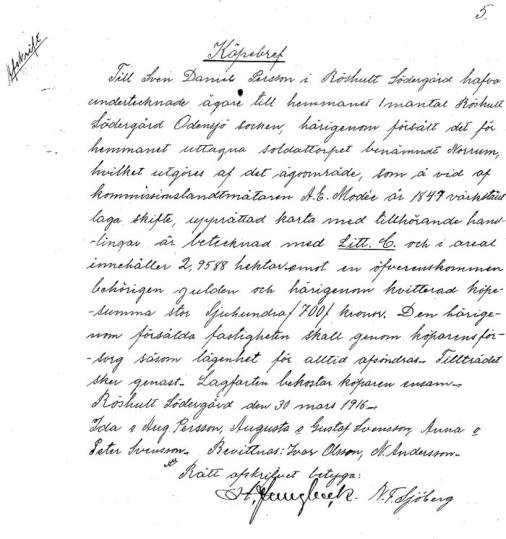 5.
Afskrift
Köpebref
Till Sven Daniel Persson i Röshult Södergård hafva
undertecknade ägare till hemmanet 1 mantal Röshult
Södergård Odensjö socken, härigenom försålt det för
hemmanet uttagna soldattorpet benämndt Norrum,
hvilket utgöres af det ägoområde, som å vid af
kommissionslandtmätaren A.E. Modée år 1847 värkstäldt
laga skifte, upprättad karta med tillhörande hand-
-lingar är betecknad med Litt. C. och i areal
innehåller 2,9588 hektar emot en öfverenskommen
behörigen gulden och härigenom kvitterad köpe-
summa stor Sjuhundra /700/ kronor. Den härige-
nom försålda fastigheten skall genom köparens för-
-sorg såsom lägenhet för alltid afsöndras. Tillträdet
sker genast. Lagfarten bekostar köparen ensam.
Röshult Södergård den 30 mars 1916.
Ida o Aug. Persson, Augusta o Gustaf Svensson, Anna o
Peter Svensson. Bevittnas: Ivar Olsson, N. Andersson.
Rätt afskrifvet betyga:
N. F. Sjöberg